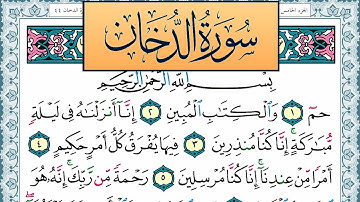 سُورَةُ الدُّخَانِ
بِسْمِ اللَّهِ الرَّحْمَٰنِ الرَّحِيمِ
حمٓ ١ وَالْكِتَابِ الْمُبِينِ ٢ إِنَّا أَنزَلْنَاهُ فِي لَيْلَةٍ
مُّبَارَكَةٍ إِنَّا كُنَّا مُنذِرِينَ ٣ فِيهَا يُفْرَقُ كُلُّ أَمْرٍ حَكِيمٍ ٤
أَمْرًا مِّنْ عِندِنَا إِنَّا كُنَّا مُرْسِلِينَ ٥ رَحْمَةً مِّن رَّبِّكَ إِنَّهُ هُوَ